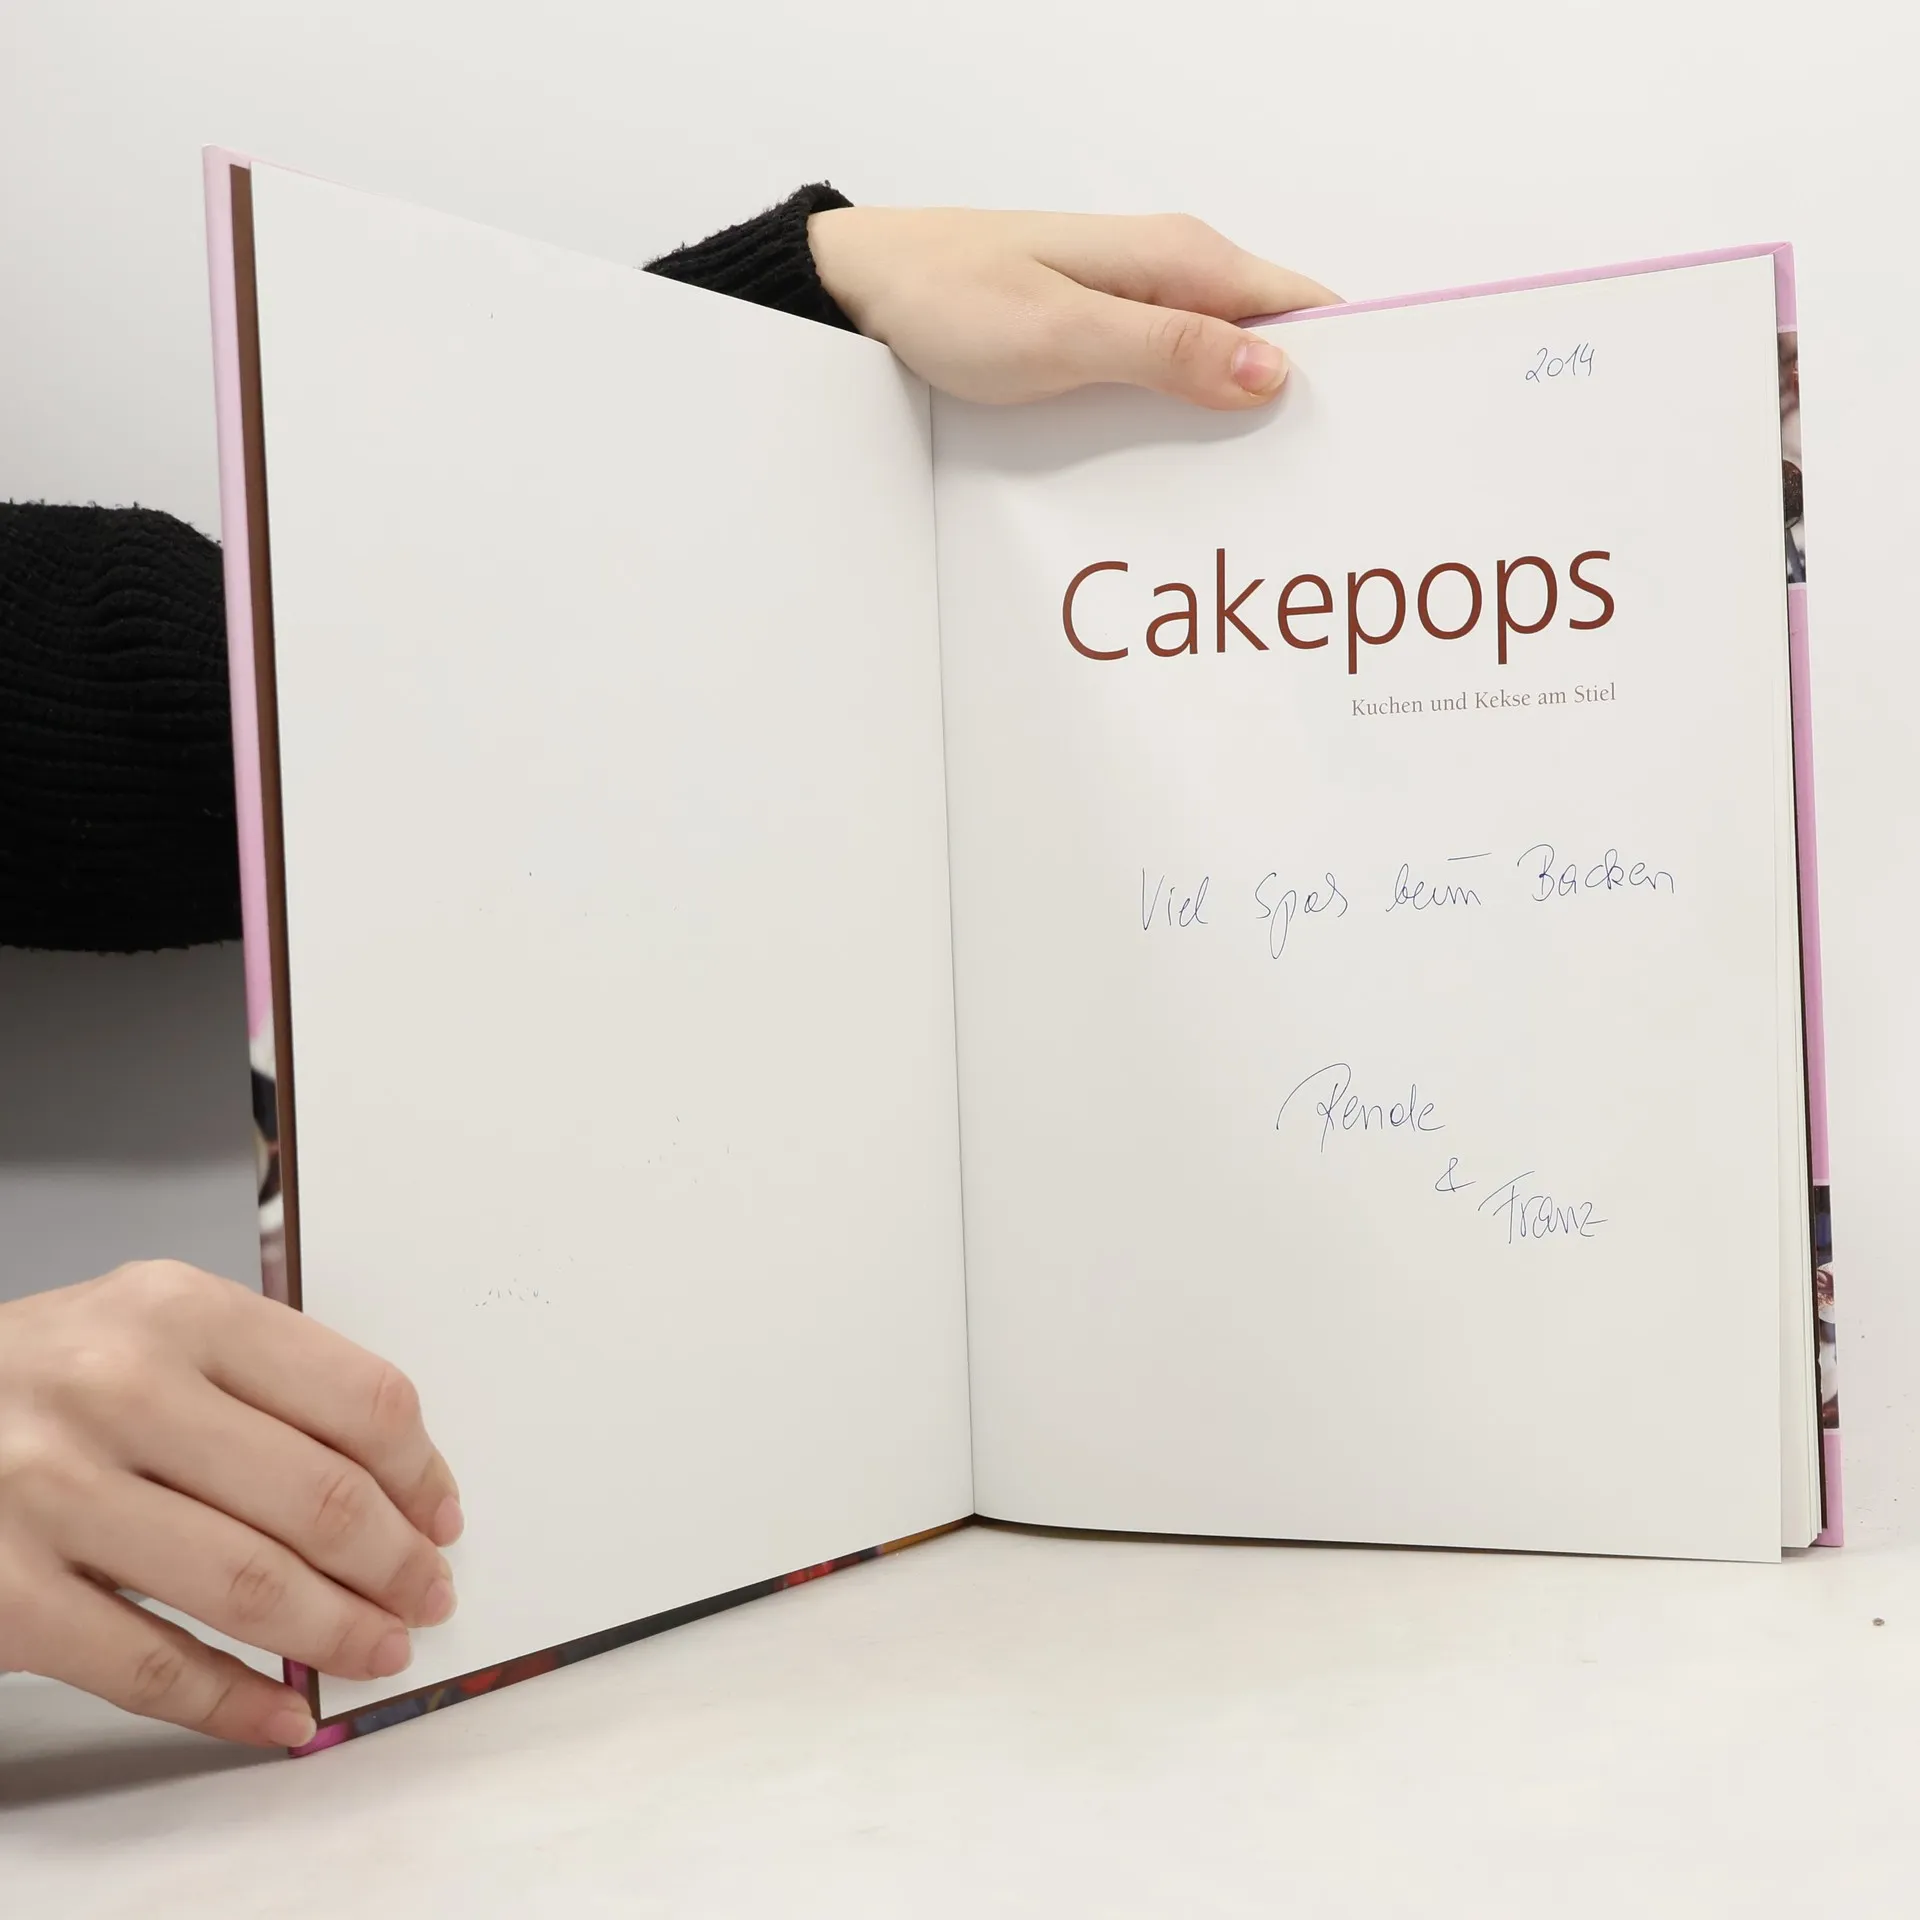 2014
Cakepops
Kuchen und Kekse am Stiel
Viel Spaß beim Backen
&
Franz